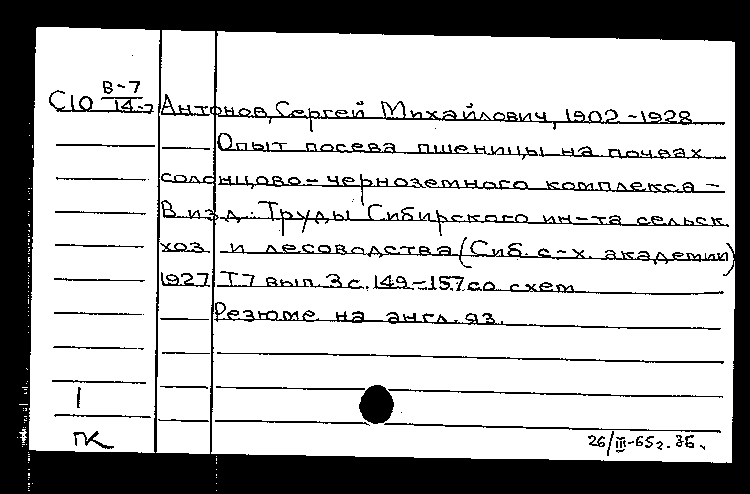 С10 В-7
14-7 Антонов, Сергей Михайлович, 1902-1928
Опыт посева пшеницы на почвах
солонцово-черноземного комплекса -
В изд.: Труды Сибирского ин-та сельск.
хоз. и лесоводства (Сиб. с-х. академии)
1927 Т 7 вып. 3 с. 149-157 со схем
Резюме на англ. яз.
1
ПК 26/III-65г. ЗБ.